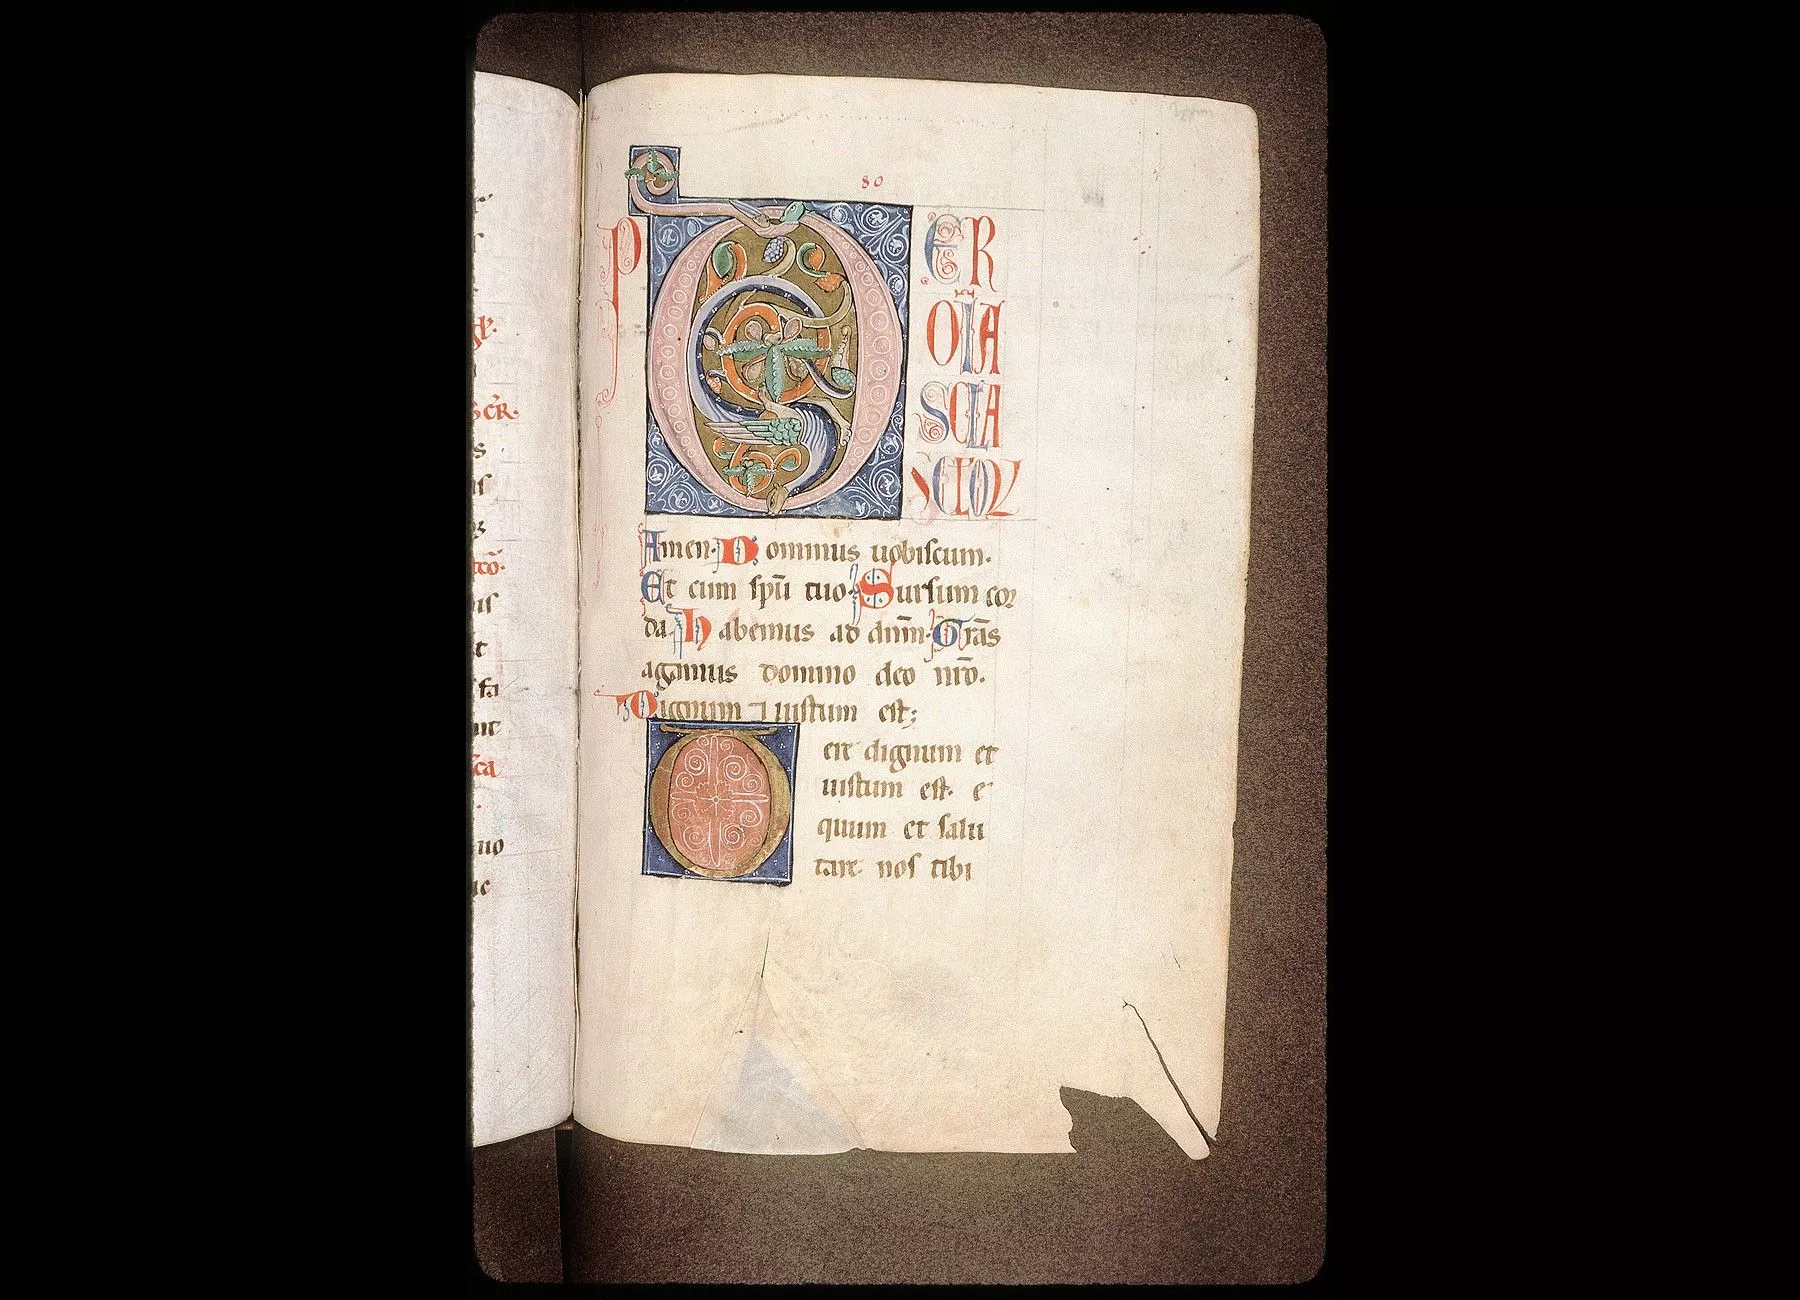 80
PER
OĪA
SCLA
SCLOꝜ
Amen. Dominus uobiscum.
Et cum spū tuo. Sursum cor
da. Habemus ad dnm̄. Grās
agamus domino deo nr̄o.
Dignum ⁊ iustum est;
ere dignum et
iustum est. e
quum et salu
tare. nos tibi